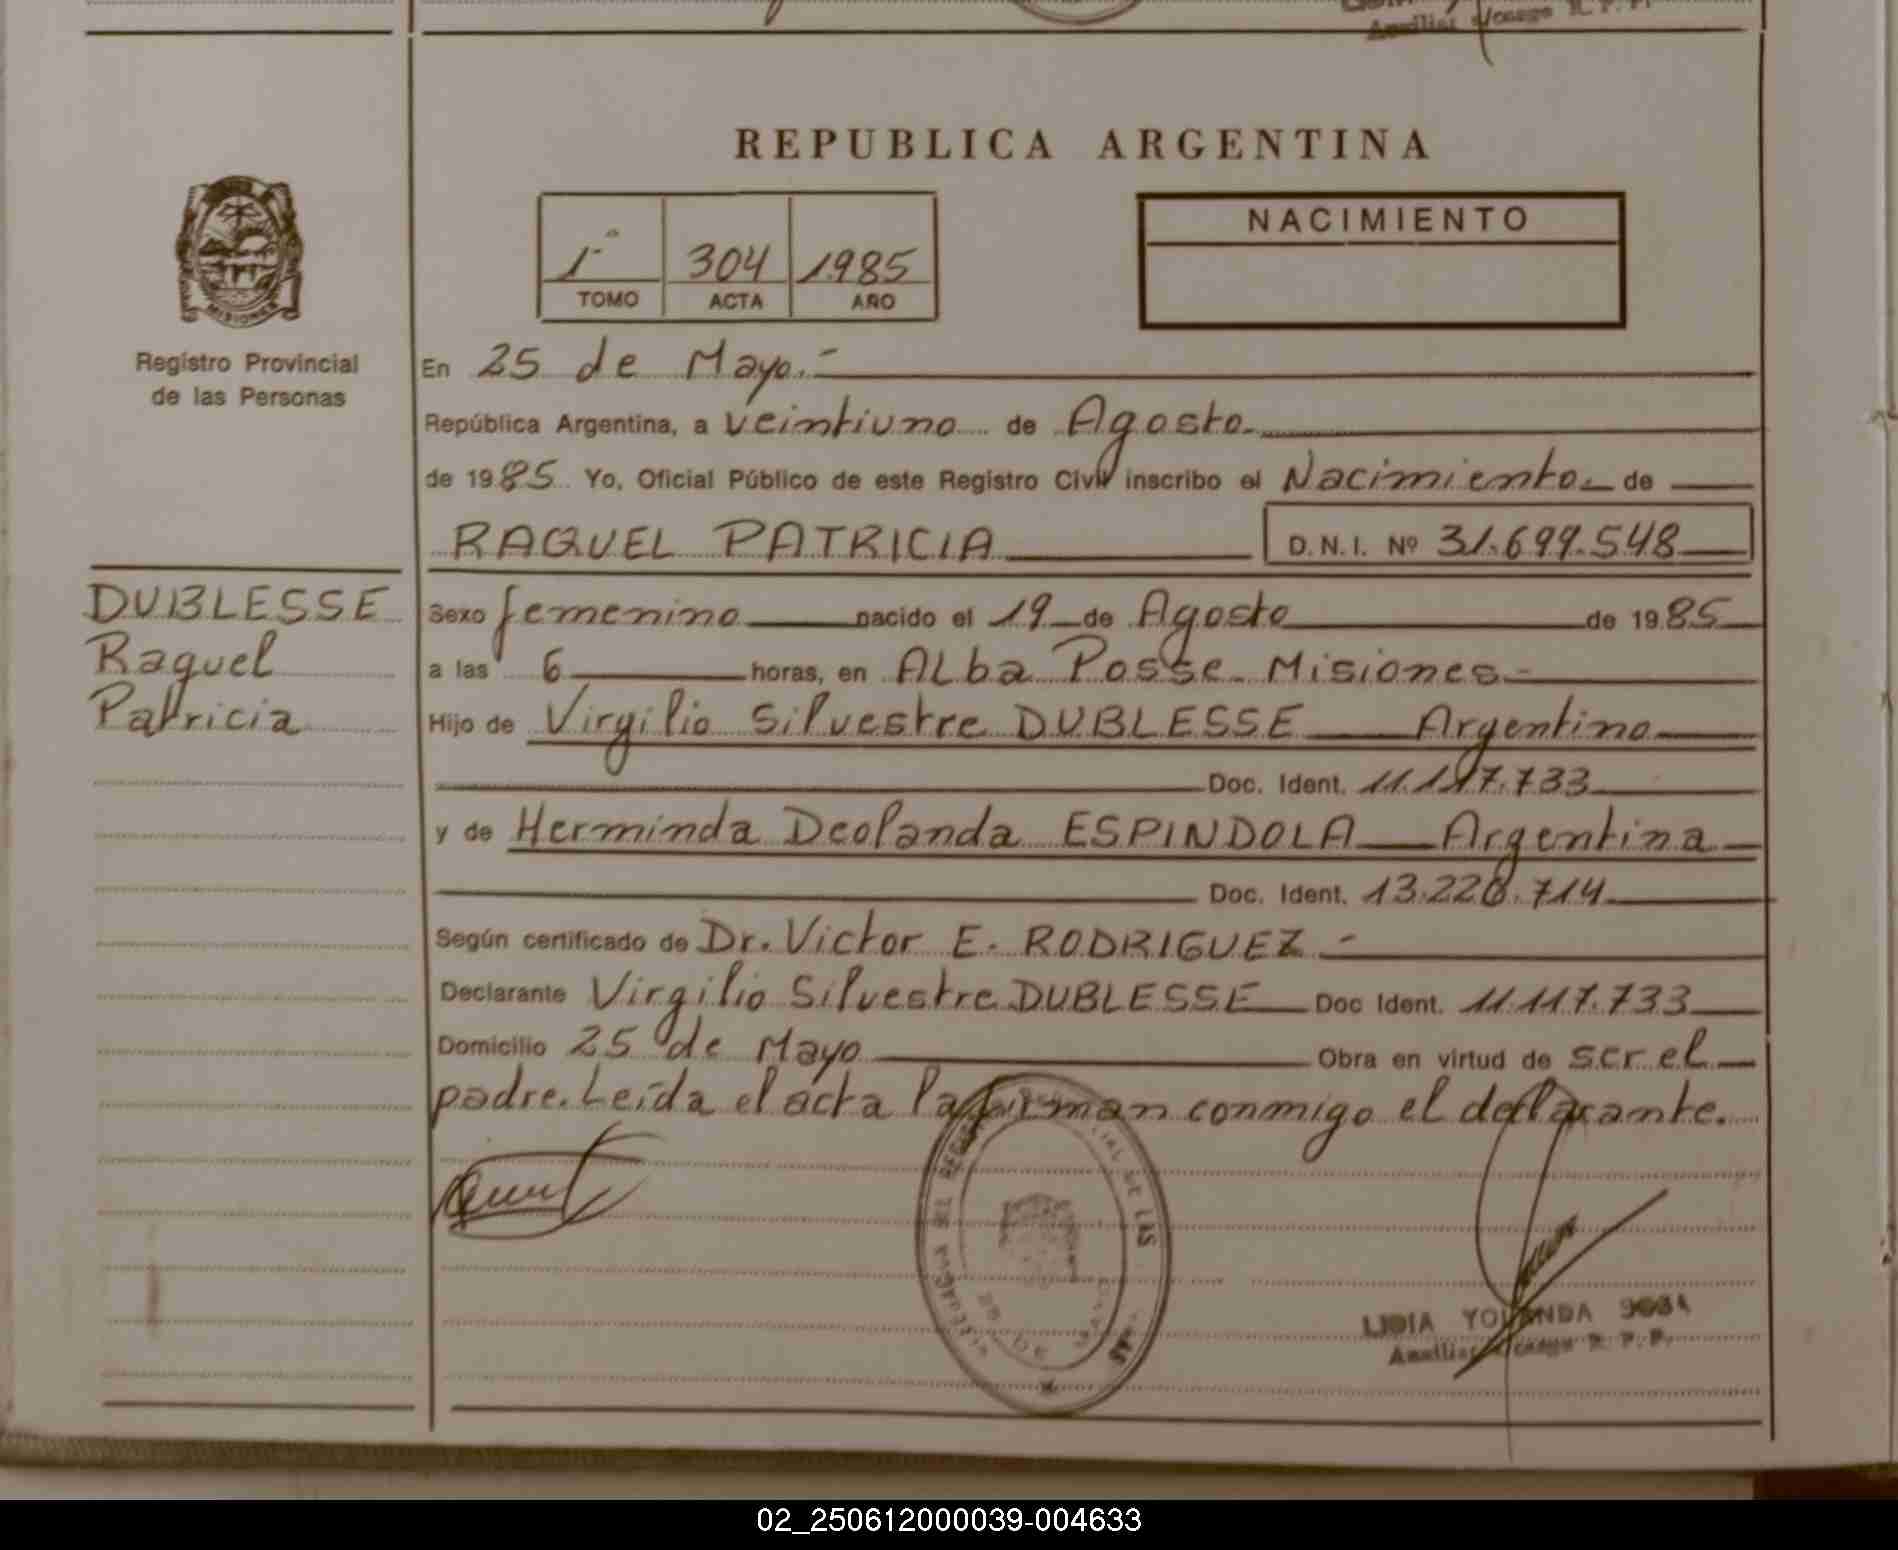 REPUBLICA ARGENTINA
1ª 304 1985
TOMO ACTA AÑO
NACIMIENTO
MISIONES
Registro Provincial
de las Personas
En 25 de Mayo.-
República Argentina, a veintiuno de Agosto
de 1985 Yo, Oficial Público de este Registro Civil inscribo el Nacimiento de
RAQUEL PATRICIA D.N.I. Nº 31.699.548
DUBLESSE
Raquel
Patricia
Sexo femenino nacido el 19 de Agosto de 1985
a las 6 horas, en Alba Posse Misiones-
Hijo de Virgilio Silvestre DUBLESSE Argentino
Doc. Ident. 11.117.733
y de Herminda Deolanda ESPINDOLA Argentina
Doc. Ident. 13.226.714
Según certificado de Dr. Victor E. RODRIGUEZ -
Declarante Virgilio Silvestre DUBLESSE Doc Ident. 11.117.733
Domicilio 25 de Mayo Obra en virtud de ser el
padre. Leída el acta la firman conmigo el declarante.
LIDIA YOLANDA
02_250612000039-004633